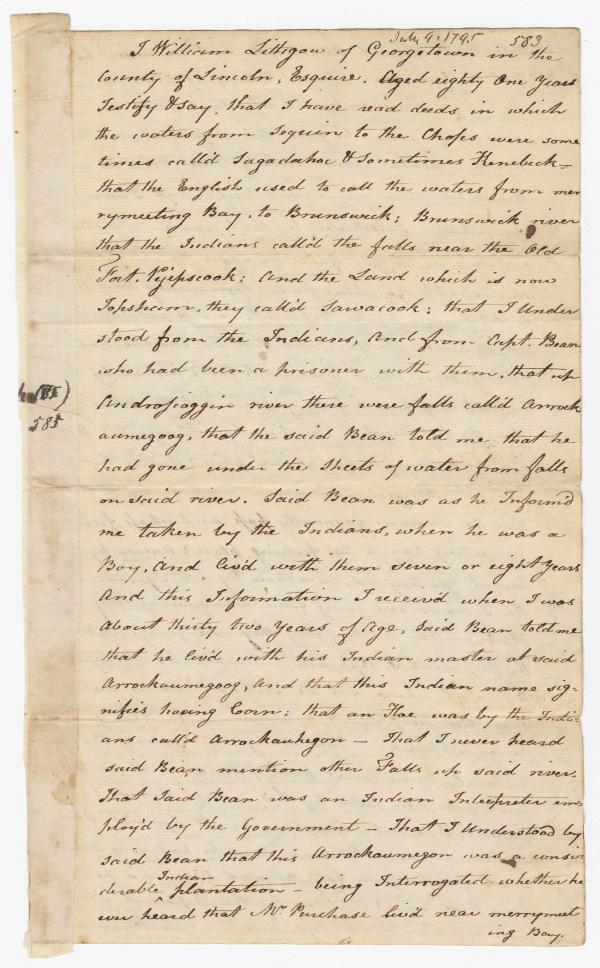 July 9. 1795 583
I William Lithgow of Georgetown in the
County of Lincoln, Esquire. Aged eighty One Years
Testify & say, that I have read deeds in which
the waters from Seguin to the Chops were some
times call'd Sagadahoc & Sometimes Kenebeck—
that the English used to call the waters from mer
rymeeting Bay, to Brunswick; Brunswick river
that the Indians call'd the falls near the Old
Fort, Pejepscook; And the Land which is now
Topsham, they call'd Sawacook; that I Under
stood from the Indians, And from Capt. Bean
who had been a prisoner with them, that up
Androscoggin river there were falls call'd Arrock
aumegoog, that the said Bean told me that he
had gone under the sheets of water from falls
on said river. Said Bean was as he Inform'd
me taken by the Indians, when he was a
Boy, And liv'd with them seven or eight Years
And this Information I receiv'd when I was
About thirty two Years of Age, Said Bean told me
that he liv'd with his Indian master at said
Arrockaumegoog, And that this Indian name sig-
nifies hoeing Corn; that an Hoe was by the Indi-
ans call'd Arrockauhegon — That I never heard
said Bean mention other Falls up said river.
That Said Bean was an Indian Interpreter em
ploy'd by the Government — That I Understood by
said Bean that this Arrockaumegon was a consi
derable Indian plantation — being Interrogated whether he
ever heard that Mr. Purchase liv'd near merrymeet
ing Bay.
585)
585